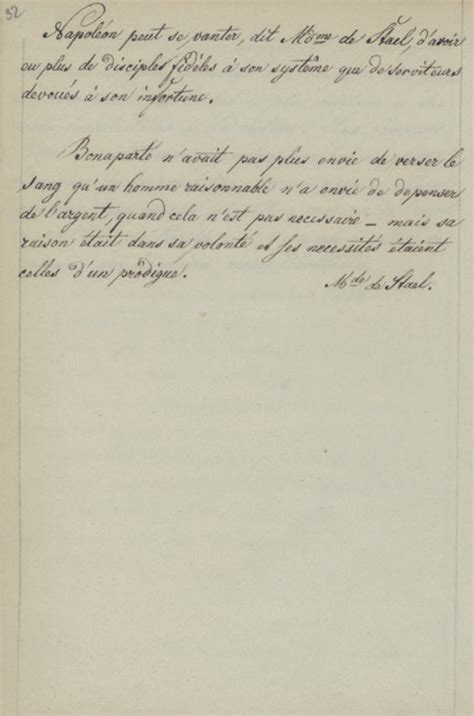 32
Napoléon peut se vanter, dit Mdme de Stael, d'avoir
eu plus de disciples fidèles à son systême que de serviteurs
devoués à son infortune.
Bonaparte n'avait pas plus envie de verser le
sang qu'un homme raisonnable n'a envie de depenser
de l'argent, quand cela n'est pas necessaire – mais sa
raison était dans sa volonté et ses necessités étaient
celles d'un prodigue.
Mde de Stael.